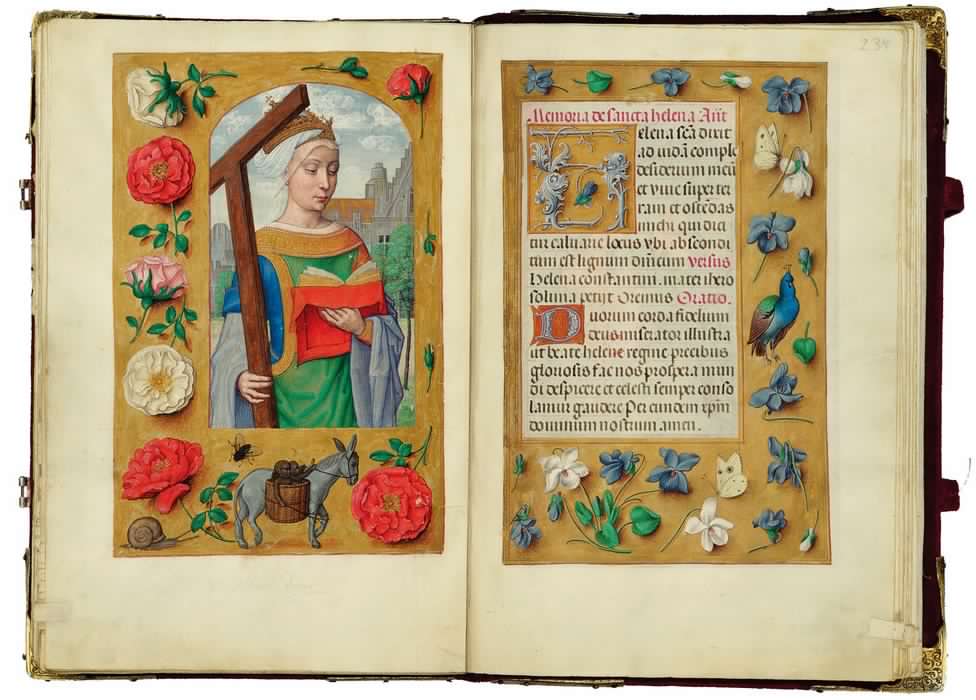 234
Memoria de sancta helena Añt
Helena scã dixit
ad iudã comple
desiderium meũ
et viue super ter
ram et ostẽdas
michi qui dici
tur caluarie locus vbi abscondi
tum est lignum dñicum versus
Helena constantini mater ihero
solima petijt Oremus Oratio.
Quorum corda fidelium
deus miserator illustra
ut beate helene regine precibus
gloriosis fac nos prospera mun
di despicere et celesti semper conso
lamur gaudere Per eundem xp̃m
dominum nostrum amen.